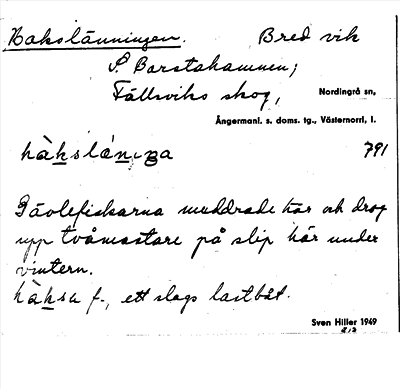 Hakslänningen. Bred vik
S. Barstahamnen;
Fällsviks skog, Nordingrå sn,
Ångermanl. s. doms. tg., Västernorrl, l.
hàkslán,ga 791
Gävlefiskarna muddrade här och drog
upp tvåmastare på slip här under
vintern.
hàksa f., ett slags lastbåt.
Sven Hiller 1949